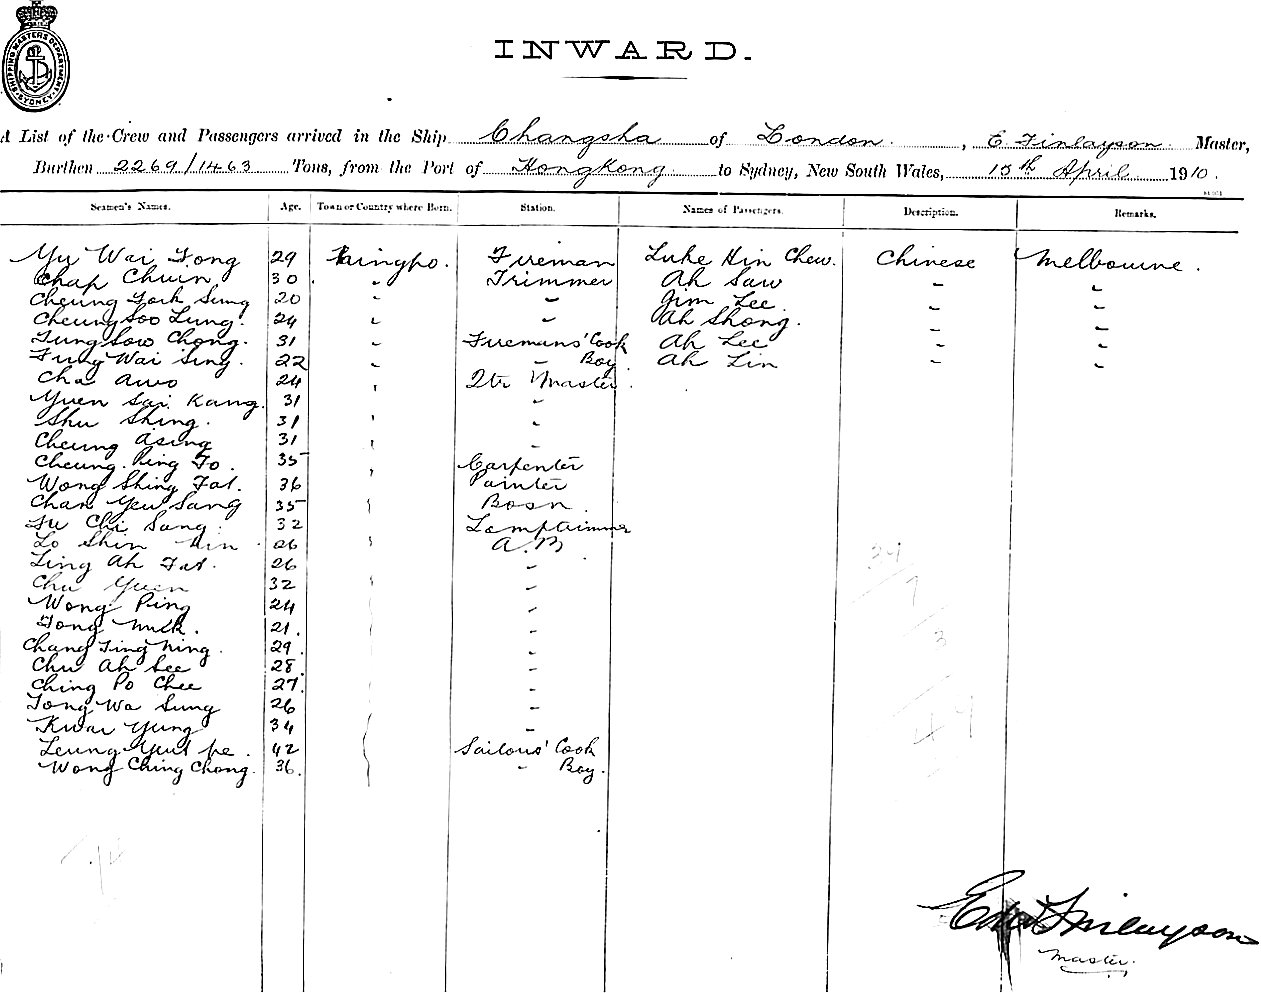 SHIPPING MASTERS DEPARTMENT SYDNEY
INWARD.
A List of the Crew and Passengers arrived in the Ship Changsha of London, E Finlayson Master,
Burthen 2269/1463 Tons, from the Port of HongKong to Sydney, New South Wales, 15th April 1910.
Seamen's Names. Age. Town or Country where Born. Station. Names of Passengers. Description. Remarks.
Yu Wai Tong 29 Ningpo. Fireman Luke Hin Chew. Chinese Melbourne.
Chap Chuin 30 " Trimmer Ah Saw " "
Cheung York Sung 20 " " Jim Lee " "
Cheung Soo Lung. 24 " " Ah Shong. " "
Tung Sow Chong. 31 " Firemans' Cook Ah Lee " "
Fung Wai Sing. 22 " " Boy Ah Lin " "
Cha Awo 24 " Qtr Master
Yuen Sai Kang. 31 " "
Shu Shing. 31 " "
Cheung Asing 31 " "
Cheung Ping To. 35 " Carpenter
Wong Shing Fat. 36 Painter
Chan Yeu Sang 35 Bosn
Fu Chi Sang. 32 Lamptrimmer
Lo Shin 26 A.B
Ling Ah Fat. 26 "
Chu Yuen 32 "
Wong Ping 24 "
Tong 21. "
Chang Ting Ning. 29. "
Chu Ah See 28. "
Ching Po Chee 27. "
Tong Wa Sung 26 "
Kwai Yung 34 "
Leung 42 Sailors' Cook
Wong Ching Chong. 36. " Boy.
24
7
3
Finlayson
Master.